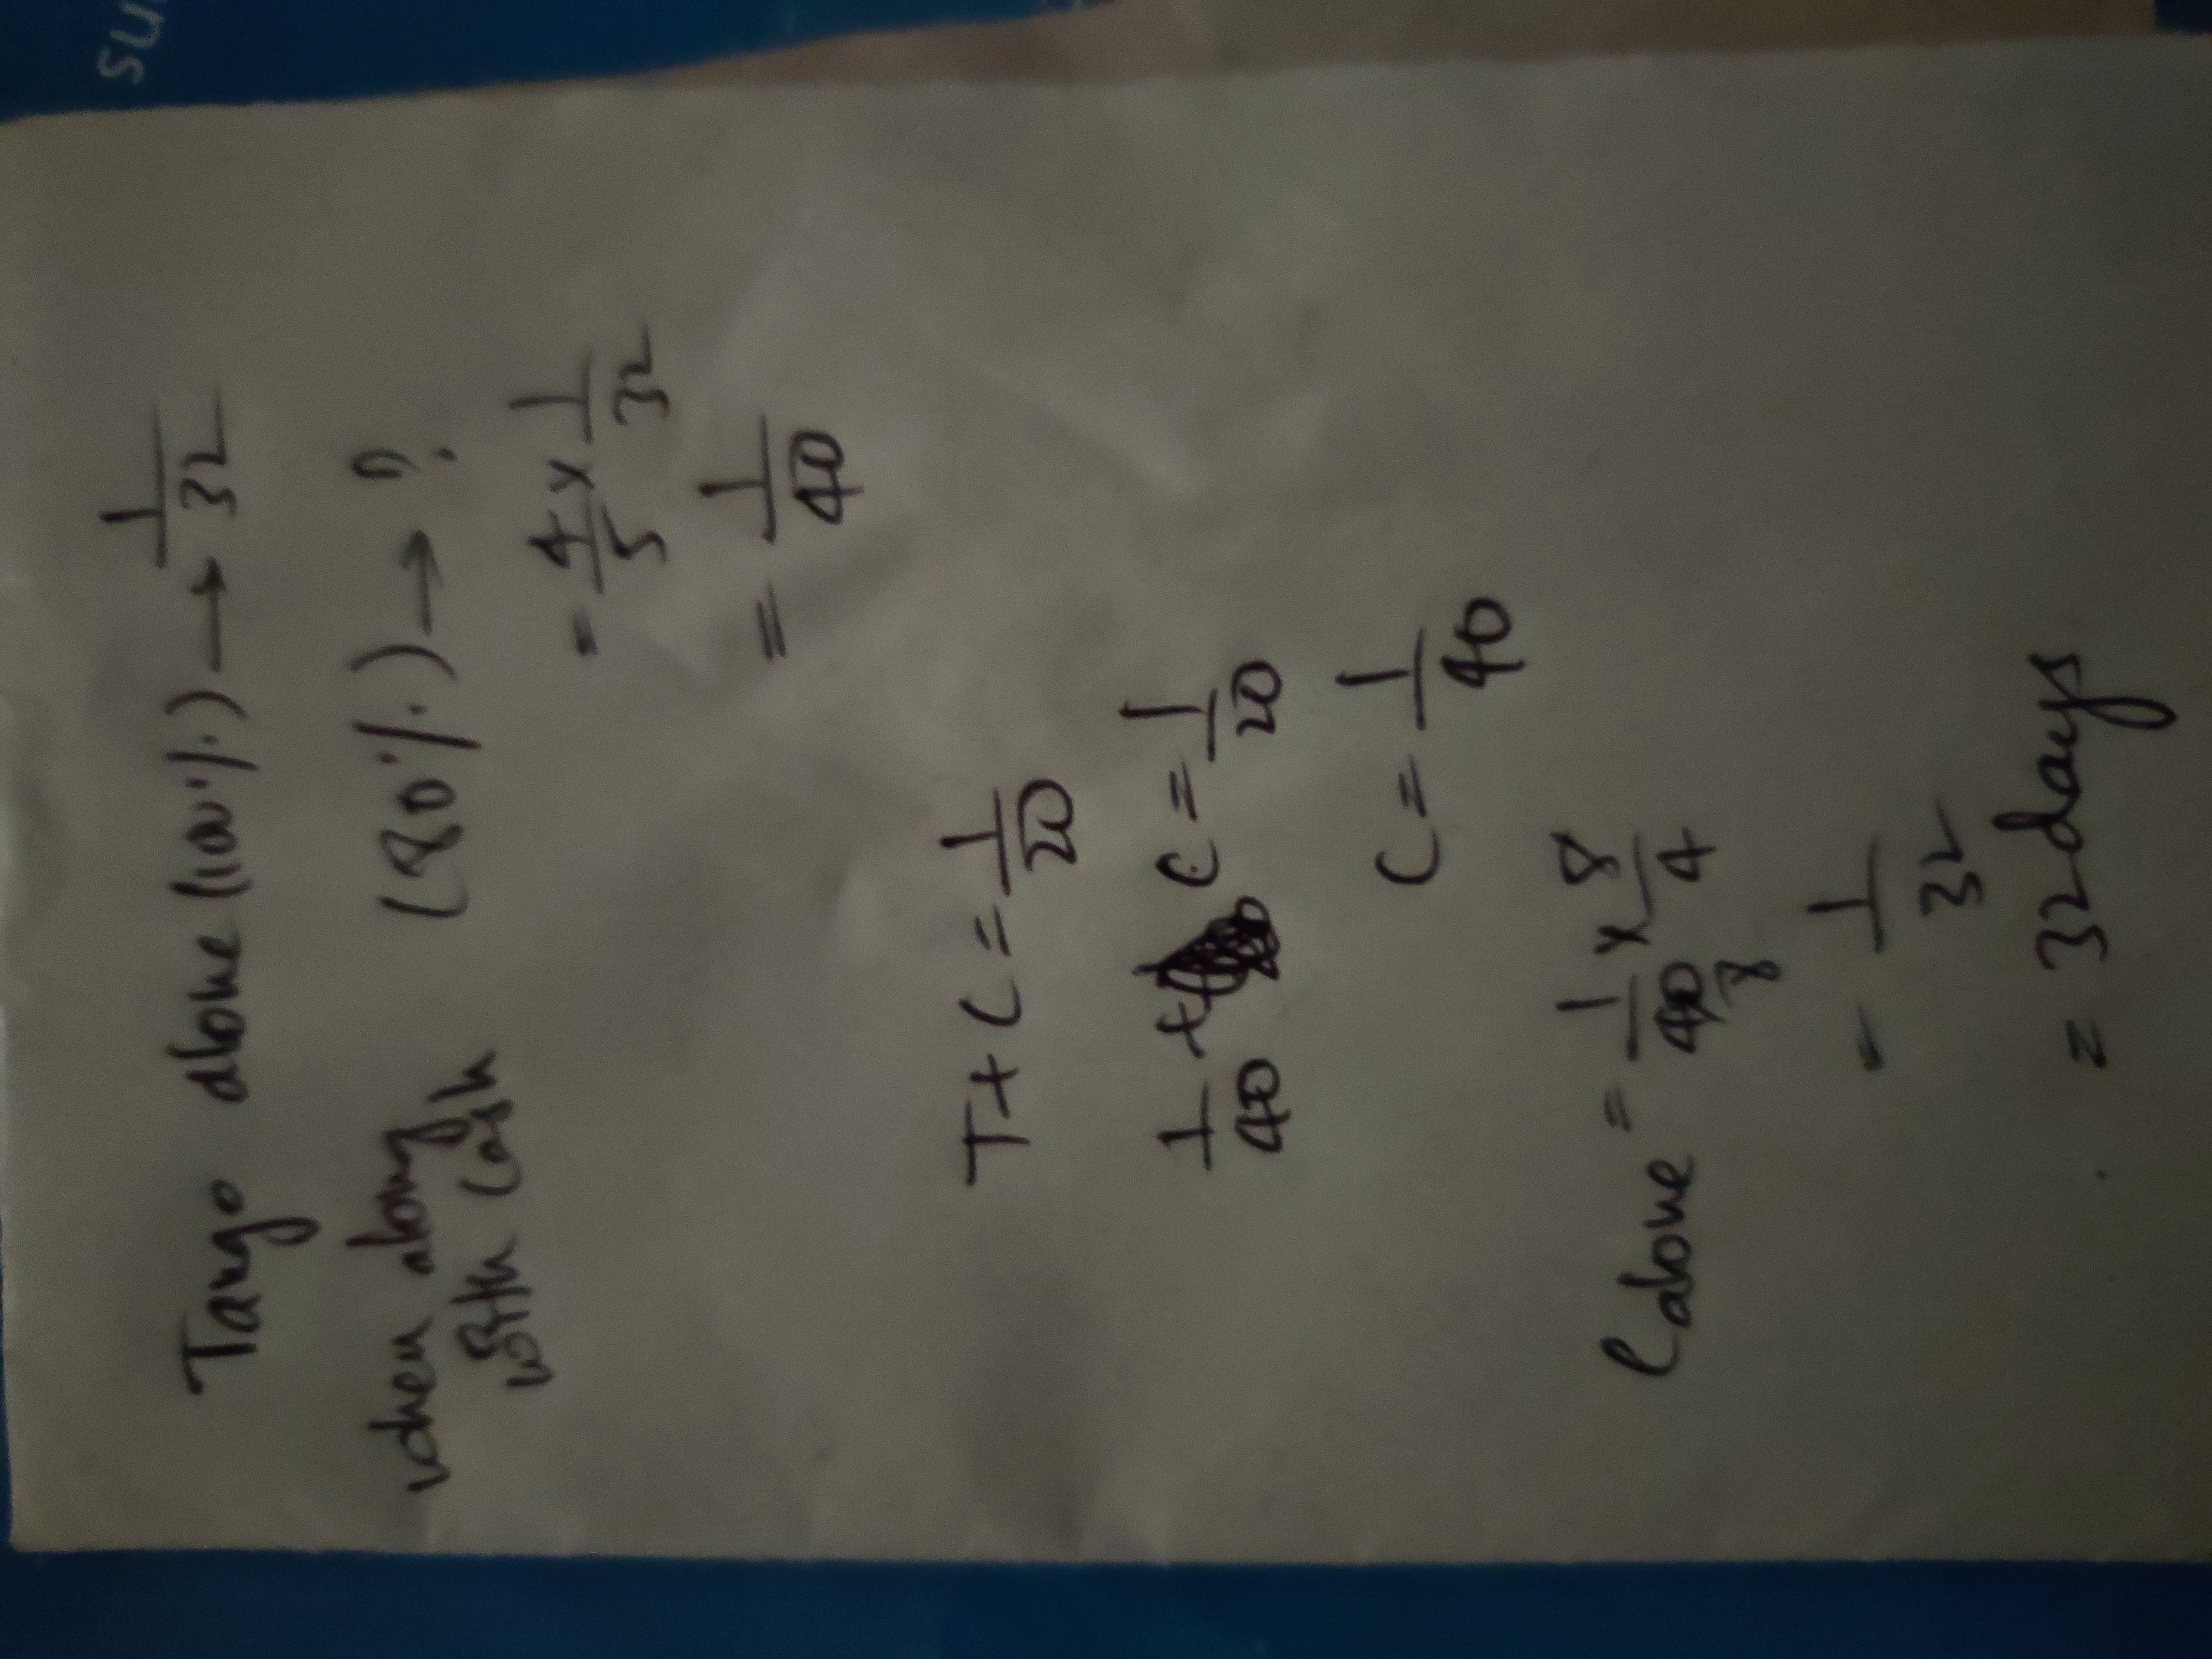 su
Tango alone (100%) → 1/32
when along with Cash (80%) → ?
= 4/5 x 1/32
= 1/40
T + C = 1/20
1/40 + C = 1/20
C = 1/40
C alone = 1/40 x 8/4
8
= 1/32
= 32 days